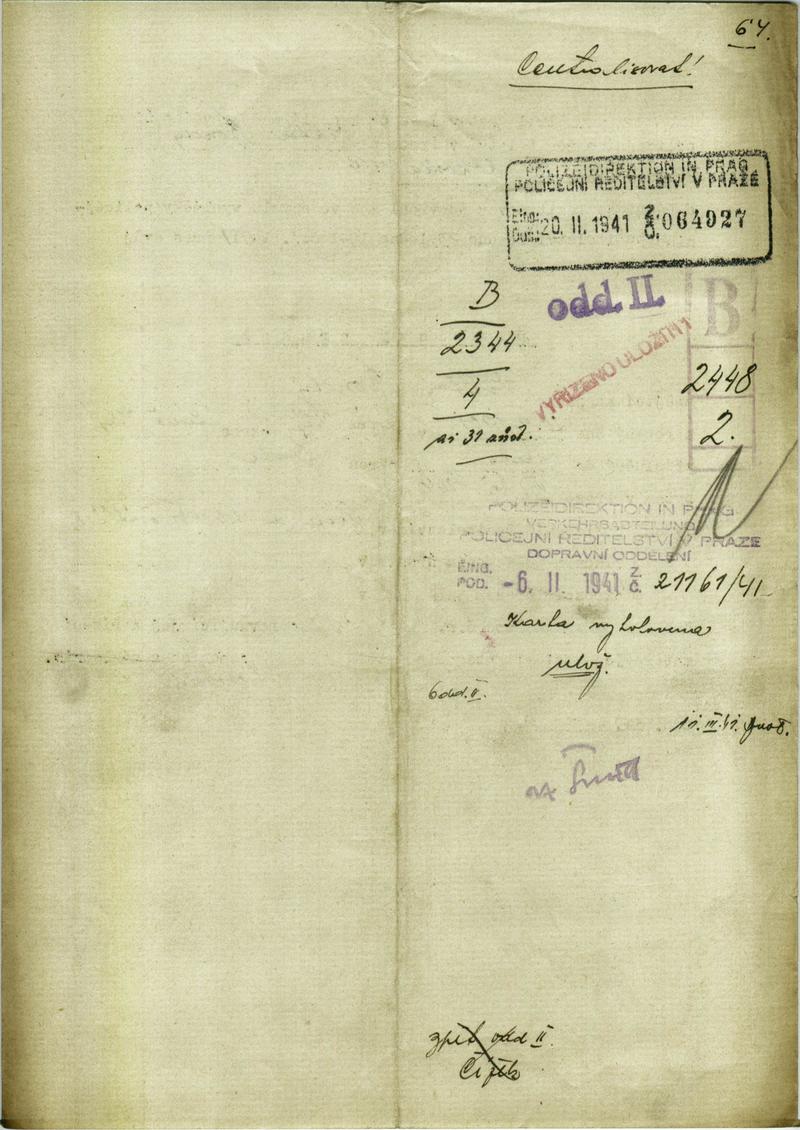 64.
Centralisovat!
POLIZEIDIREKTION IN PRAG
POLICEJNÍ ŘEDITELSTVÍ V PRAZE
Eing:
Došl: 20. II. 1941 Z. Č. 064927
B
odd. II.
B
2344
VYŘÍZENO ULOŽITI!
4
2448
2.
POLIZEIDIREKTION IN PRAG
VERKEHRSABTEILUNG
POLICEJNÍ ŘEDITELSTVÍ V PRAZE
DOPRAVNÍ ODDĚLENÍ
EING.
POD. -6. II. 1941 Z. Č. 21161/41
Karta vyhotovena
ulož.
odd. II.
III. 41.
zpět odd II.